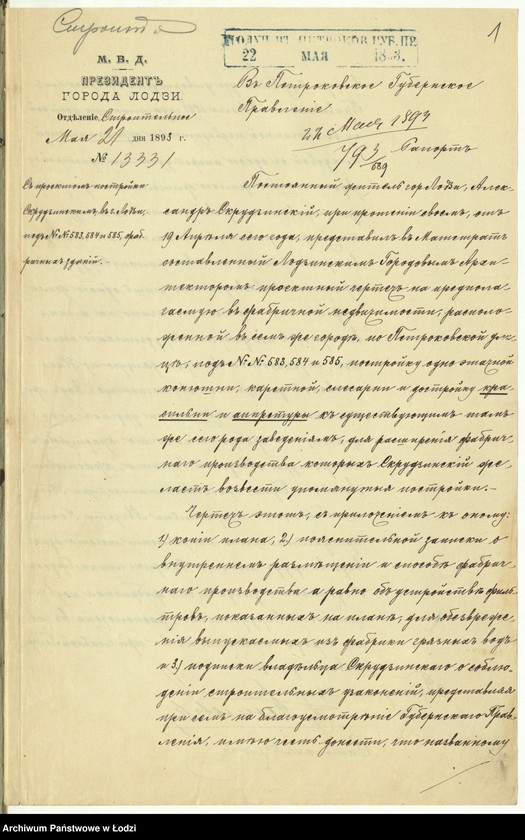 Строит
1
М. В. Д.
ПРЕЗИДЕНТЪ
ГОРОДА ЛОДЗИ.
Отдѣленіе Строительное
Мая 21 дня 1893 г.
№ 13331
ПОЛУЧ. ВЪ ПЕТРОКОВ. ГУБ. ПР.
22 МАЯ 1893.
Въ Петроковское Губернское
Правленіе
22 Мая 1893
793/689
Рапортъ
Съ проектомъ постройки
Скрудзинскимъ, въ г. Лодзи,
подъ №№ 583, 584 и 585, фаб-
ричныхъ зданій.-
Постоянный житель гор. Лодзи, Алек-
сандръ Скрудзинскій, при прошеніи своемъ, отъ
19 Апрѣля сего года, представилъ въ Магистратъ
составленный Лодзинскимъ Городовымъ Архи-
текторомъ проектный чертежъ на предпола-
гаемую въ фабричной недвижимости, располо-
женной въ семъ же городѣ, по Петроковской ули-
цѣ, подъ №№ 583, 584 и 585, постройку одно этажной
конюшни, каретной, слесарни и достройку кра-
сильни и аппретуры къ существующимъ тамъ
же сего рода заведеніямъ, для расширенія фабрич-
наго производства которыхъ Скрудзинскій же-
лаетъ возвести упомянутыя постройки.-
Чертежъ этотъ, съ приложеніемъ къ оному:
1) копіи плана, 2) пояснительной записки о
внутреннемъ размѣщеніи и способѣ фабрич-
наго производства а равно объ устройствѣ филь-
тровъ, показанныхъ на планѣ, для обезвреже-
нія выпускаемыхъ изъ фабрики грязныхъ водъ
и 3) подписки владѣльца Скрудзинскаго о соблю-
деніи строительныхъ узаконеній, представляя
при семъ на благоусмотрѣніе Губернскаго Прав-
ленія, имѣю честь донести, что названному
Archiwum Państwowe w Łodzi